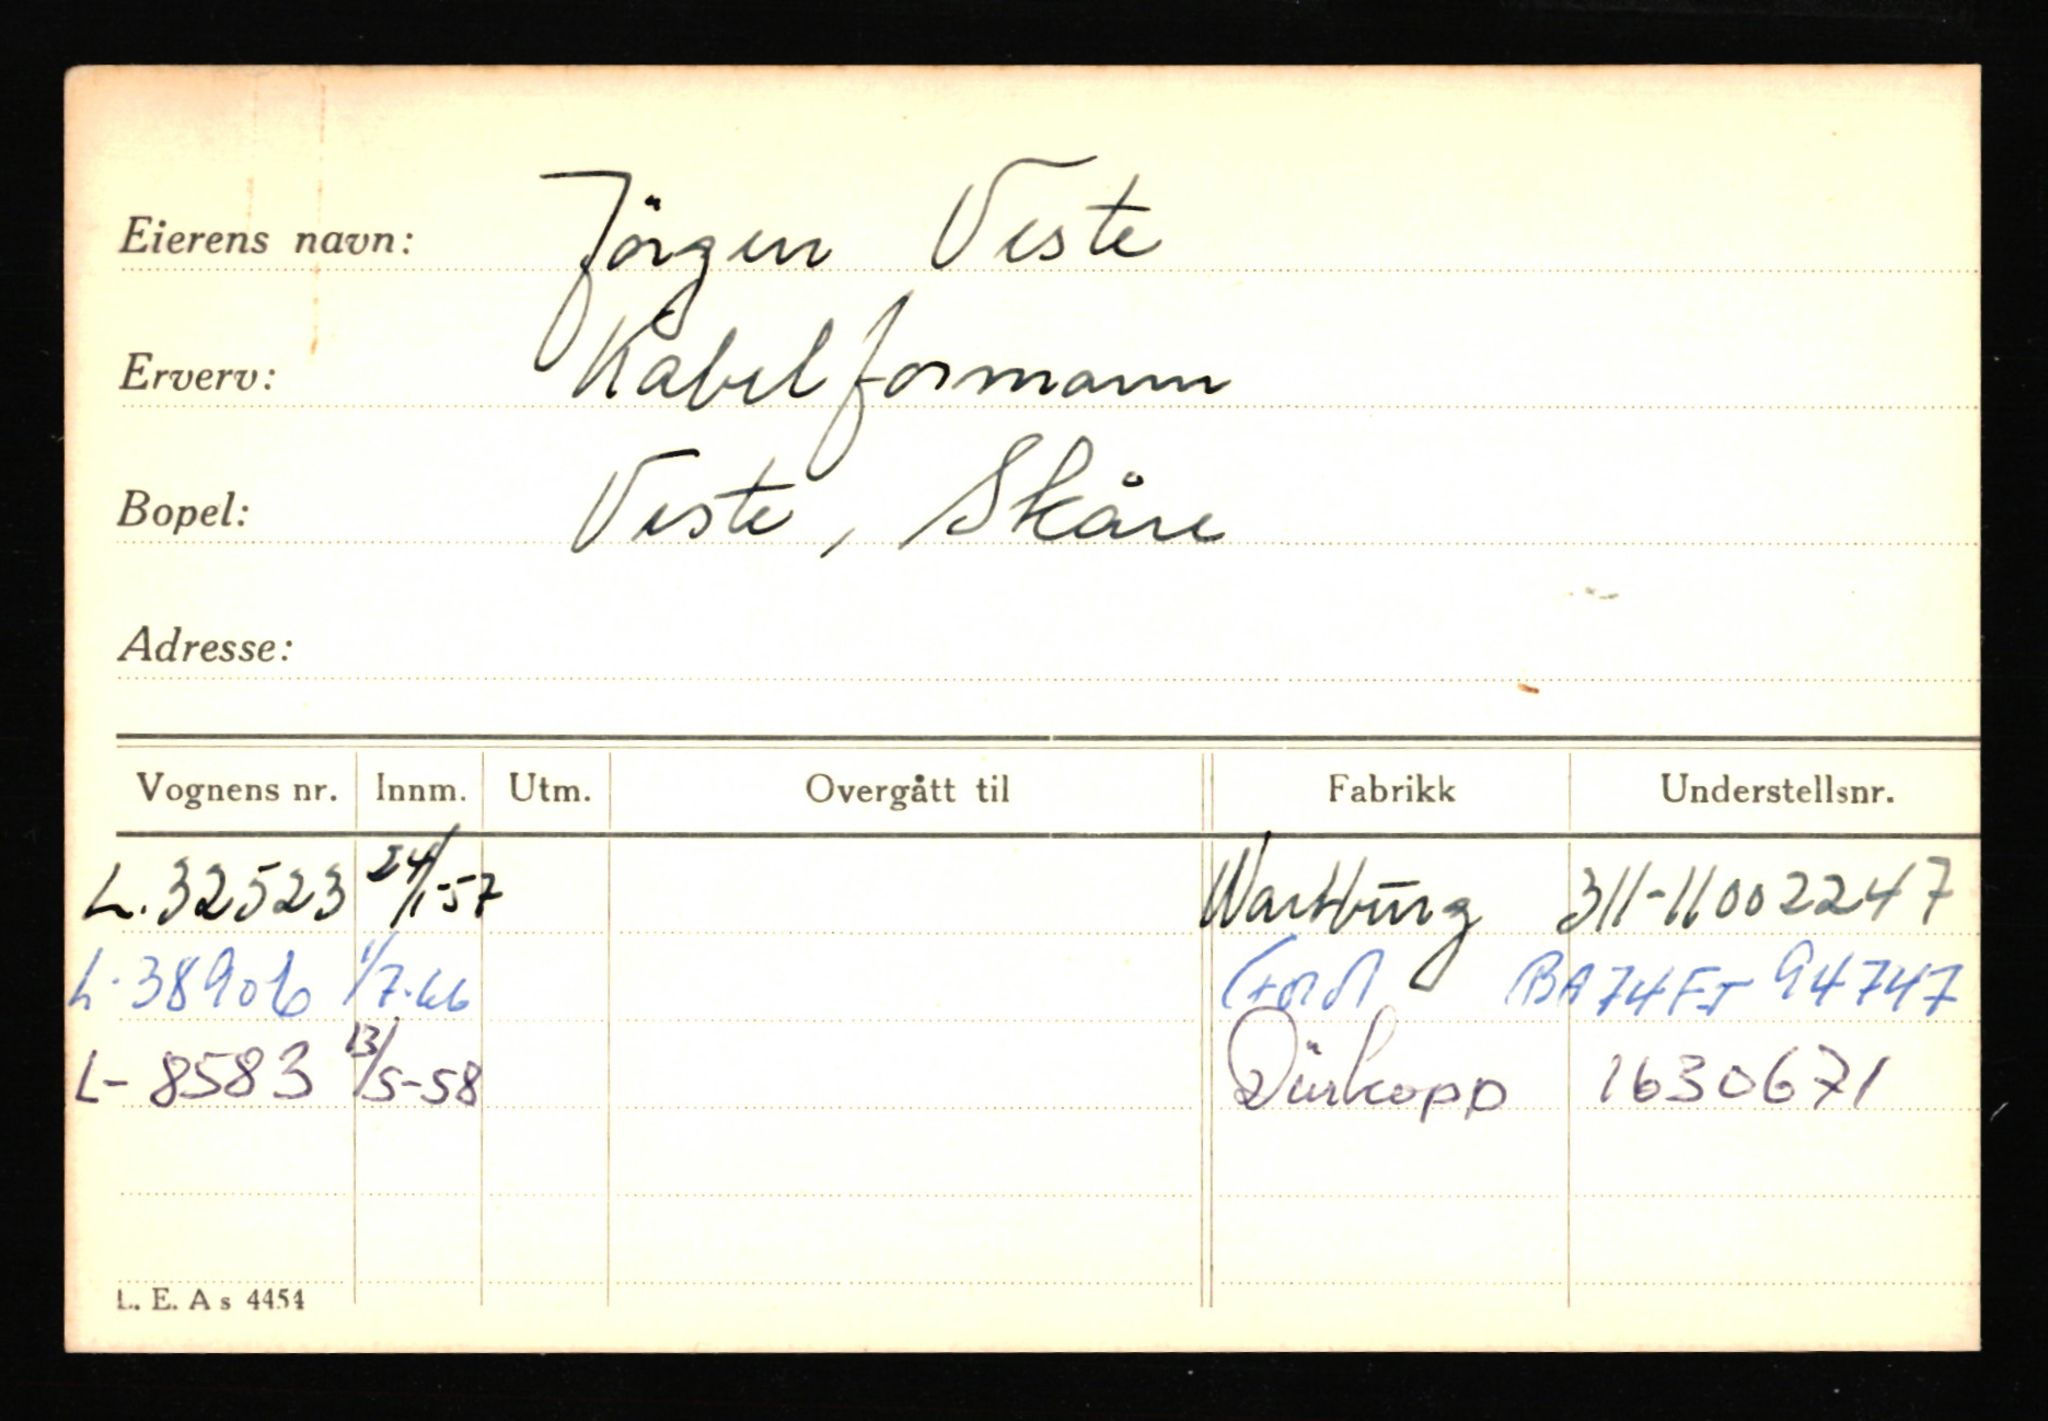 Eierens navn: Jörgen Viste
Erverv: Kabelformann
Bopel: Viste, Skåre
Adresse:
Vognens nr. Innm. Utm. Overgått til Fabrikk Understellsnr.
L. 32523 24/1-57 Wartburg 311-11002247
L. 38906 1/7-66 Ford BA74FJ94747
L- 8583 13/5-58 Dürkopp 1630671
L. E. A s 4454